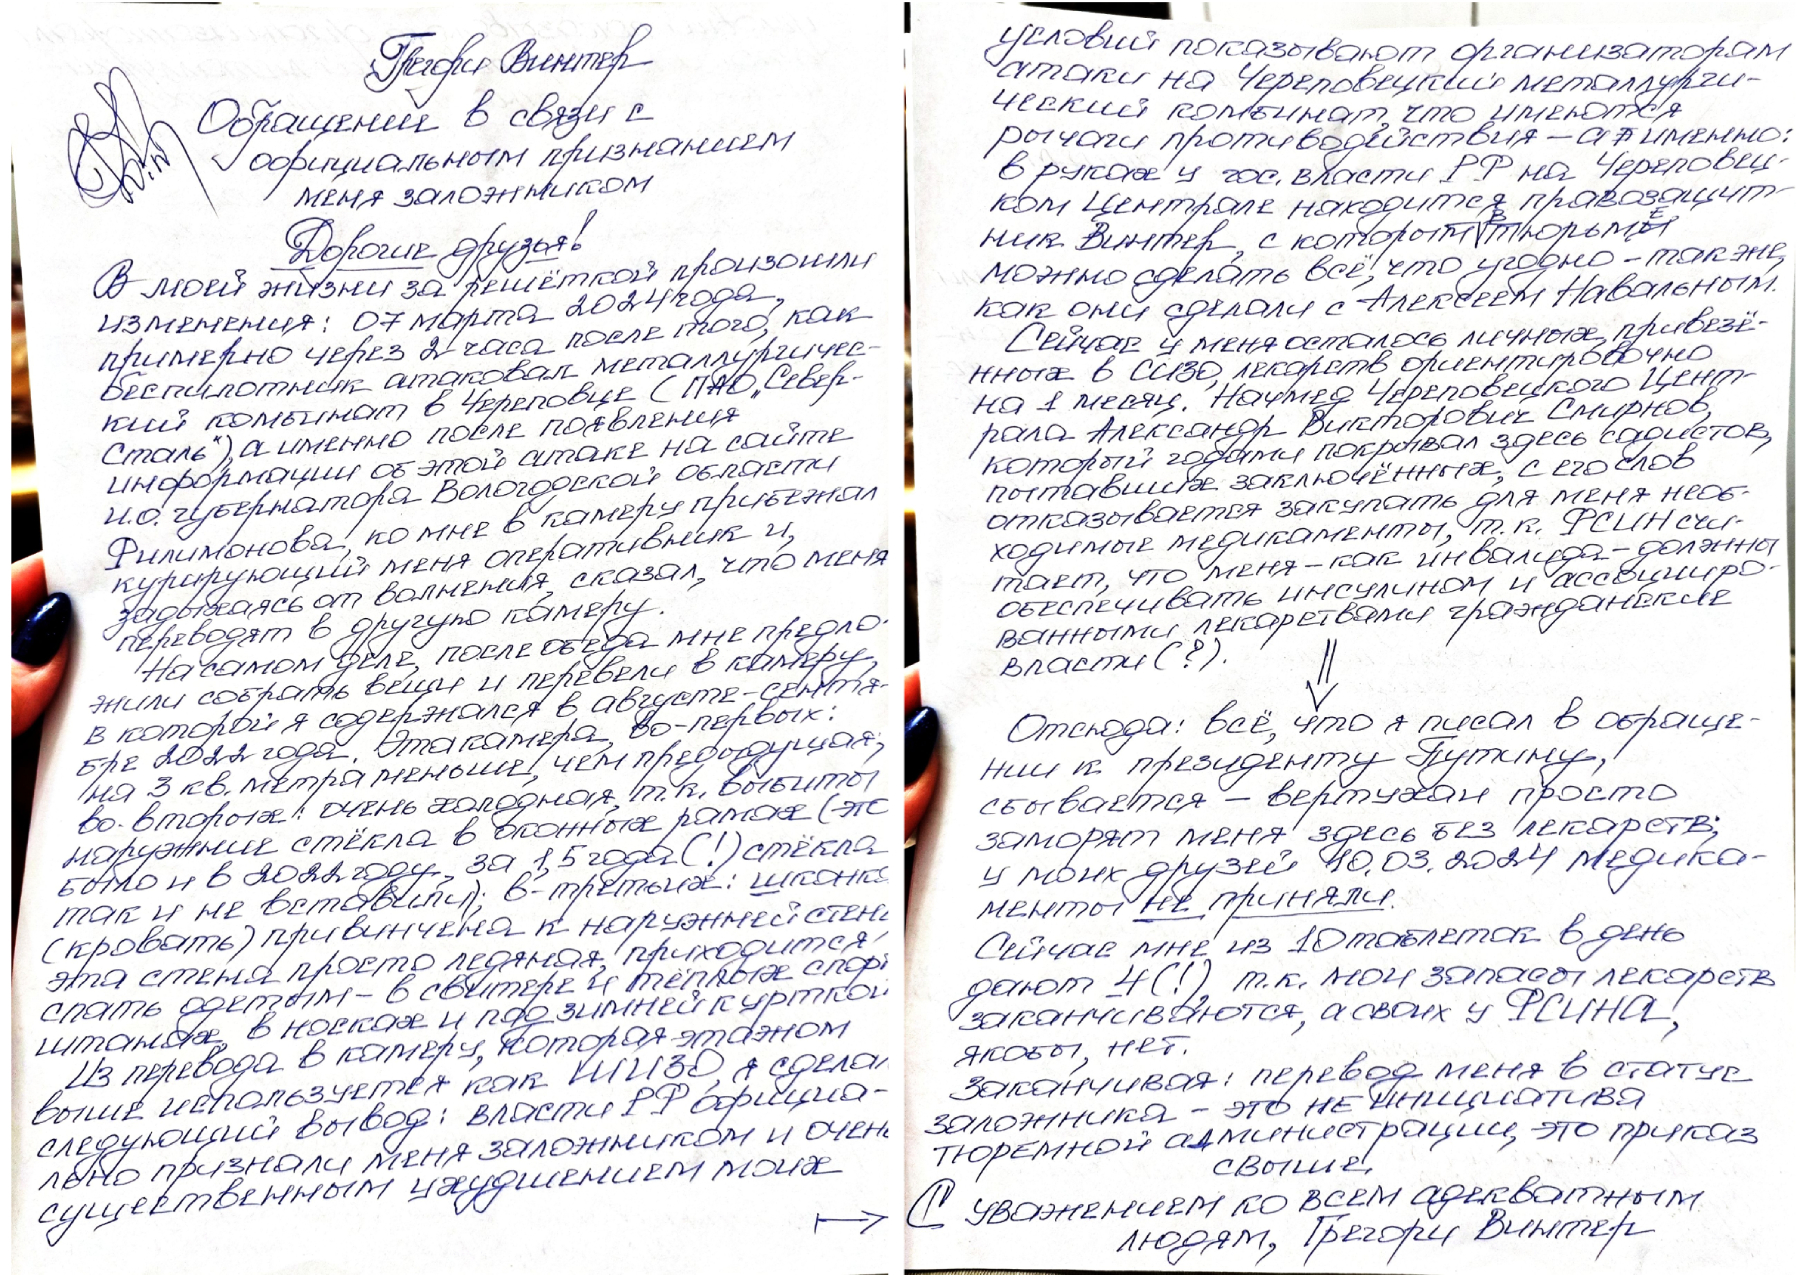 Грегори Винтер
Обращение в связи с
официальным признанием
меня заложником
Дорогие друзья!
В моей жизни за решёткой произошли
изменения: 07 марта 2024 года,
примерно через 2 часа после того, как
беспилотник атаковал металлургичес-
кий комбинат в Череповце (ПАО „Север-
сталь"), а именно после появления
информации об этой атаке на сайте
и.о. губернатора Вологодской области
Филимонова, ко мне в камеру прибежал
курирующий меня оперативник и,
задыхаясь от волнения, сказал, что меня
переводят в другую камеру.
На самом деле, после обеда мне предло-
жили собрать вещи и перевели в камеру,
в которой я содержался в августе-сентя-
бре 2022 года. Эта камера, во-первых:
на 3 кв. метра меньше, чем предыдущая;
во-вторых: очень холодная, т.к. выбиты
наружние стёкла в оконных рамах (это
было и в 2022 году, за 1,5 года (!) стёкла
так и не вставили); в-третьих: шконка
(кровать) привинчена к наружней стене
эта стена просто ледяная, приходится
спать одетым – в свитере и тёплых спорт
штанах, в носках и под зимней курткой
Из перевода в камеру, которая этажом
выше используется как ШИЗО, я сделал
следующий вывод: власти РФ официа-
льно признали меня заложником и очень
существенным ухудшением моих
условий показывают организаторам
атаки на Череповецкий металлурги-
ческий комбинат, что имеются
рычаги противодействия – а именно:
в руках у гос. власти РФ на Череповец-
ком Централе находится правозащит-
ник Винтер, с которым в тюрьме
можно сделать всё, что угодно – так же,
как они сделали с Алексеем Навальным.
Сейчас у меня осталось личных, привезё-
нных в СИЗО, лекарств ориентировочно
на 1 месяц. Начмед Череповецкого Цент-
рала Александр Викторович Смирнов,
который годами покрывал здесь садистов,
пытавших заключённых, с его слов
отказывается закупать для меня необ-
ходимые медикаменты, т.к. ФСИН счи-
тает, что меня – как инвалида – должны
обеспечивать инсулином и ассоцииро-
ванными лекарствами гражданские
власти (?).
Отсюда: всё, что я писал в обраще-
нии к президенту Путину,
сбывается – вертухаи просто
заморят меня здесь без лекарств;
у моих друзей 10.03.2024 медика-
менты не приняли.
Сейчас мне из 10 таблеток в день
дают 4 (!), т.к. мои запасы лекарств
заканчиваются, а своих у ФСИНа,
якобы, нет.
Заканчивая: перевод меня в статус
заложника – это не инициатива
тюремной администрации, это приказ
свыше.
С уважением ко всем адекватным
людям, Грегори Винтер